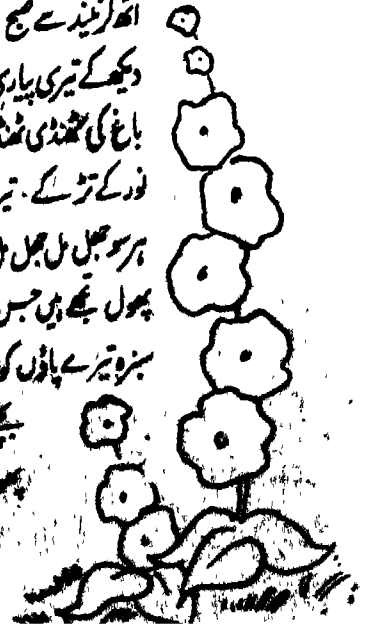 اٹھ کر نیند سے صبح
دیکھ کے تیری پیاری
باغ کی ٹھنڈی ٹھنڈ
نور کے تڑکے۔ تیر
ہر سو جھل مل جھل مل
پھول تجھے ہیں جس
سبزہ تیرے پاؤں کو